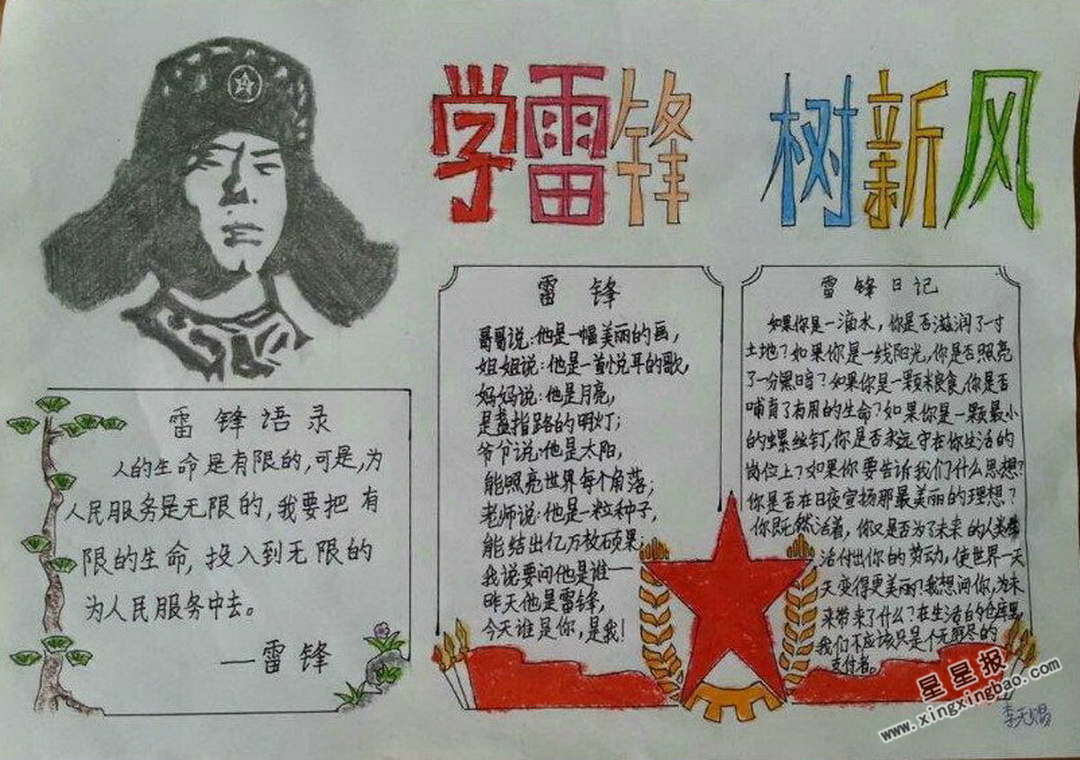 学雷锋 树新风
雷锋语录
人的生命是有限的,可是,为
人民服务是无限的,我要把有
限的生命,投入到无限的
为人民服务中去。
—雷锋
雷锋
哥哥说:他是一幅美丽的画,
姐姐说:他是一首悦耳的歌,
妈妈说:他是月亮,
是盏指路的明灯;
爷爷说:他是太阳,
能照亮世界每个角落;
老师说:他是一粒种子,
能结出亿万枚硕果;
我说要问他是谁——
昨天他是雷锋,
今天谁是你,是我!
雷锋日记
如果你是一滴水,你是否滋润了一寸
土地?如果你是一线阳光,你是否照亮
了一分黑暗?如果你是一颗粮食,你是否
哺育了有用的生命?如果你是一颗最小
的螺丝钉,你是否永远守在你生活的
岗位上?如果你要告诉我们什么思想?
你是否在日夜宣扬那最美丽的理想?
你既然活着,你又是否为了未来的人类
活付出你的劳动,使世界一天
天变得更美丽?我想问你,为未
来带来了什么?在生活的仓库里,
我们不应该只是个无穷尽的
支付者。
李天赐
星星报
www.xingxingbao.com